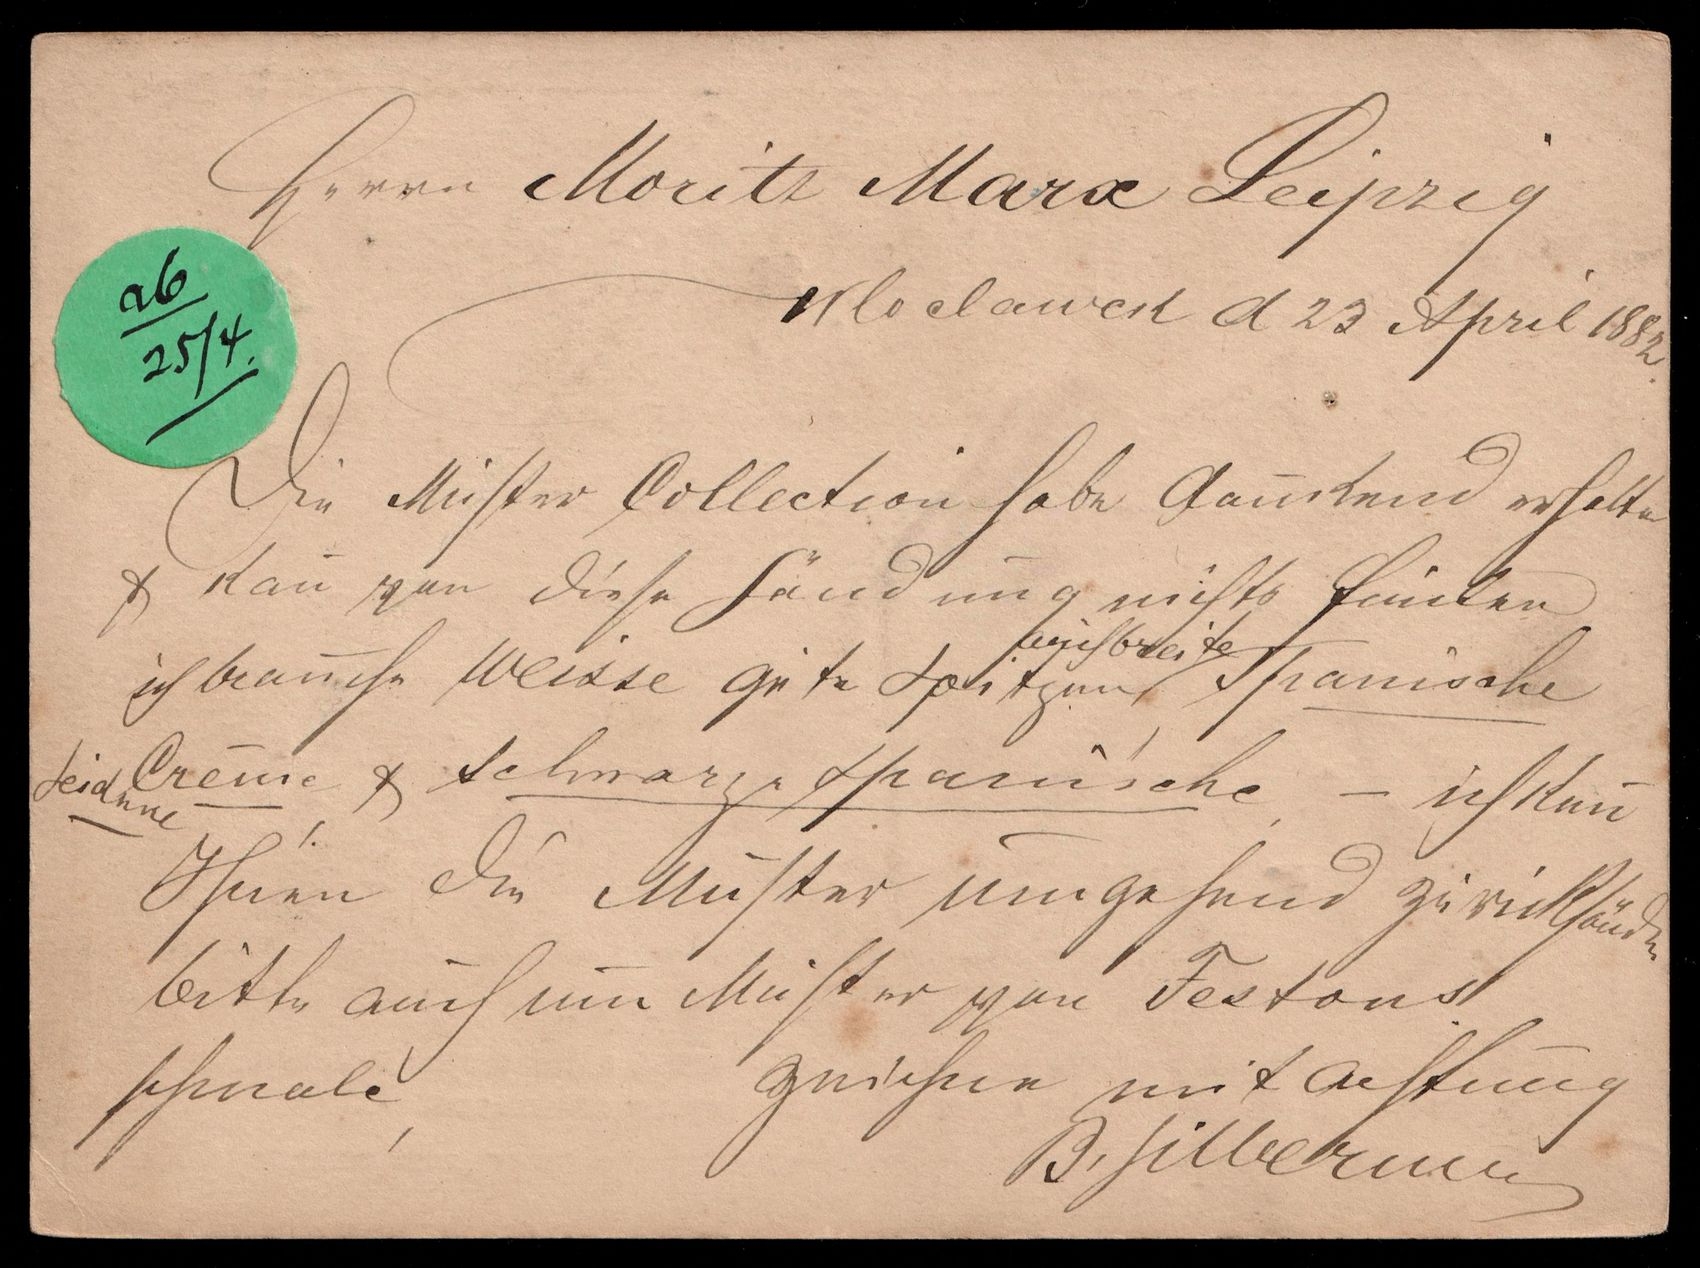 Herrn Moritz Marx Leipzig
ab
25/4.
Wloclawek d 23 April 1882.
Die Muster Collection habe dankend erhalten
& kan von diese Sändung nichts
auch breite
ich brauche Weisse gute Spitzen Spanische
Seidene
Creme & schwarze Spanische, – ich kan
Ihnen die Muster umgehend zuricksänden
bitte auch um Muster von Festons
schmale, zeichne mit Achtung
B. Silberman